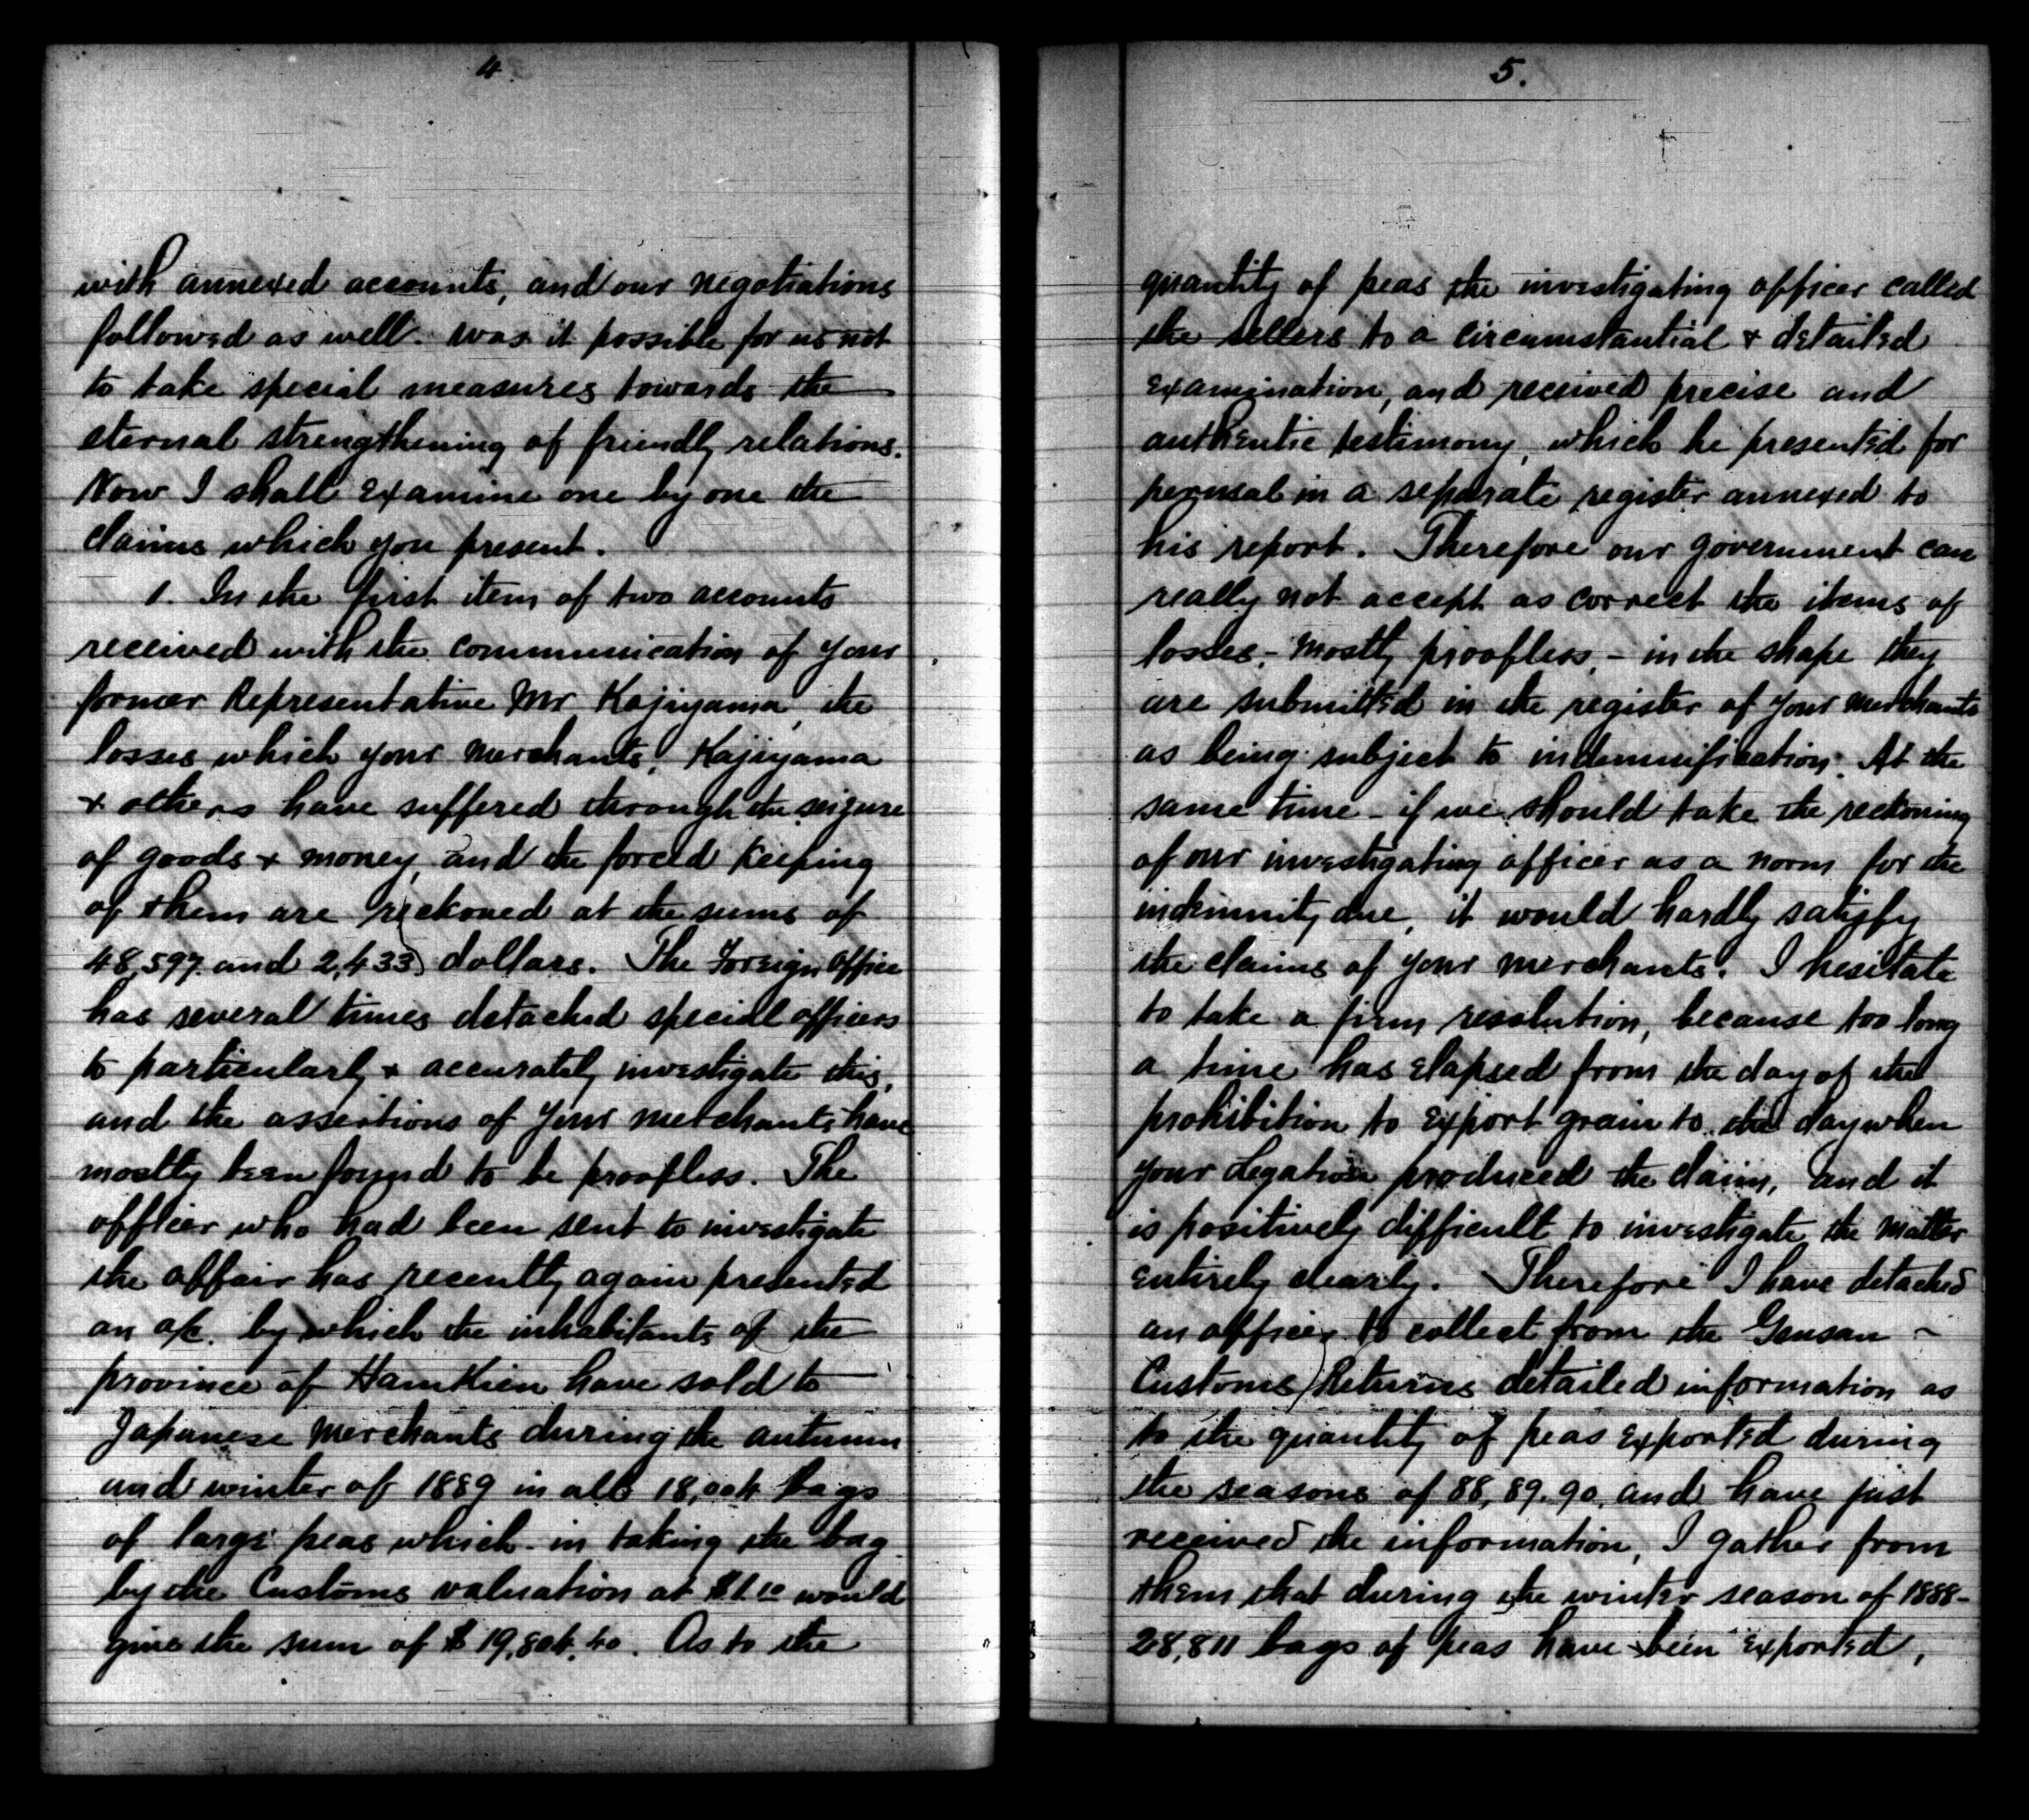 4.
with annexed accounts, and our negotiations
followed as well. Was it possible for us not
to take special measures towards the
eternal strengthening of friendly relations.
Now I shall examine one by one the
claims which you present.
1. In the first item of two accounts
received with the communication of your
former Representative Mr Kajiyama, the
losses which your merchants, Kajiyama
& others have suffered through the seizure
of goods & money, and the forced keeping
of them are reckoned at the sums of
48,597. and 2,433 dollars. The Foreign Office
has several times detached special officers
to particularly & accurately investigate this,
and the assertions of your merchants have
mostly been found to be proofless. The
officer who had been sent to investigate
the affair has recently again presented
an a/c. by which the inhabitants of the
province of Hamkien have sold to
Japanese merchants during the autumn
and winter of 1889 in all 18,004 bags
of large peas which in taking the bag
by the Customs valuation at $1.10 would
give the sum of $19,804.40. As to the
5.
quantity of peas the investigating officer called
the sellers to a circumstantial & detailed
examination, and received precise and
authentic testimony, which he presented for
perusal in a separate register annexed to
his report. Therefore our government can
really not accept as correct the items of
losses, - mostly proofless, - in the shape they
are submitted in the register of your merchants
as being subject to indemnification. At the
same time - if we should take the reckoning
of our investigating officer as a norm for the
indemnity due, it would hardly satisfy
the claims of your merchants. I hesitate
to take a firm resolution, because too long
a time has elapsed from the day of the
prohibition to export grain to the day when
your Legation produced the claim, and it
is positively difficult to investigate the matter
entirely clearly. Therefore I have detached
an officer to collect from the Gensan -
Customs Returns detailed information as
to the quantity of peas exported during
the seasons of 88, 89. 90. and have just
received the information, I gather from
them that during the winter season of 1888-
28,811 bags of peas have been exported,